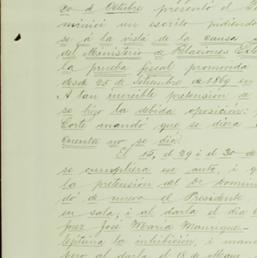 20 de Octubre presentó el D
mínici un escrito pidiendo
se, á la vista de la causa
del Ministerio de Relaciones Este
la prueba fiscal promovida
desde 25 de setiembre de 1869
A tan increible pretension de
se hizo la debida oposicion:
Corte mandó que se diera
cuenta no se dió.
El 15, el 29 i el 30 de
se cumpliera su auto, i
la pretension del Dr Domini
dó de nuevo el Presidente
en sala; i al darla el dia
juez José Maria Manrique
la inhibicion, i manda
pero al darla el 18 de Mayo